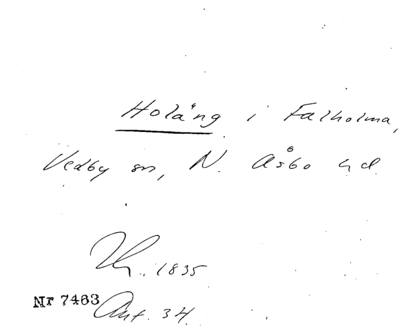 Holäng i Falholma,
Vedby sn, N. Åsbo hd.
1835
Nr 7463 Ant. 34.